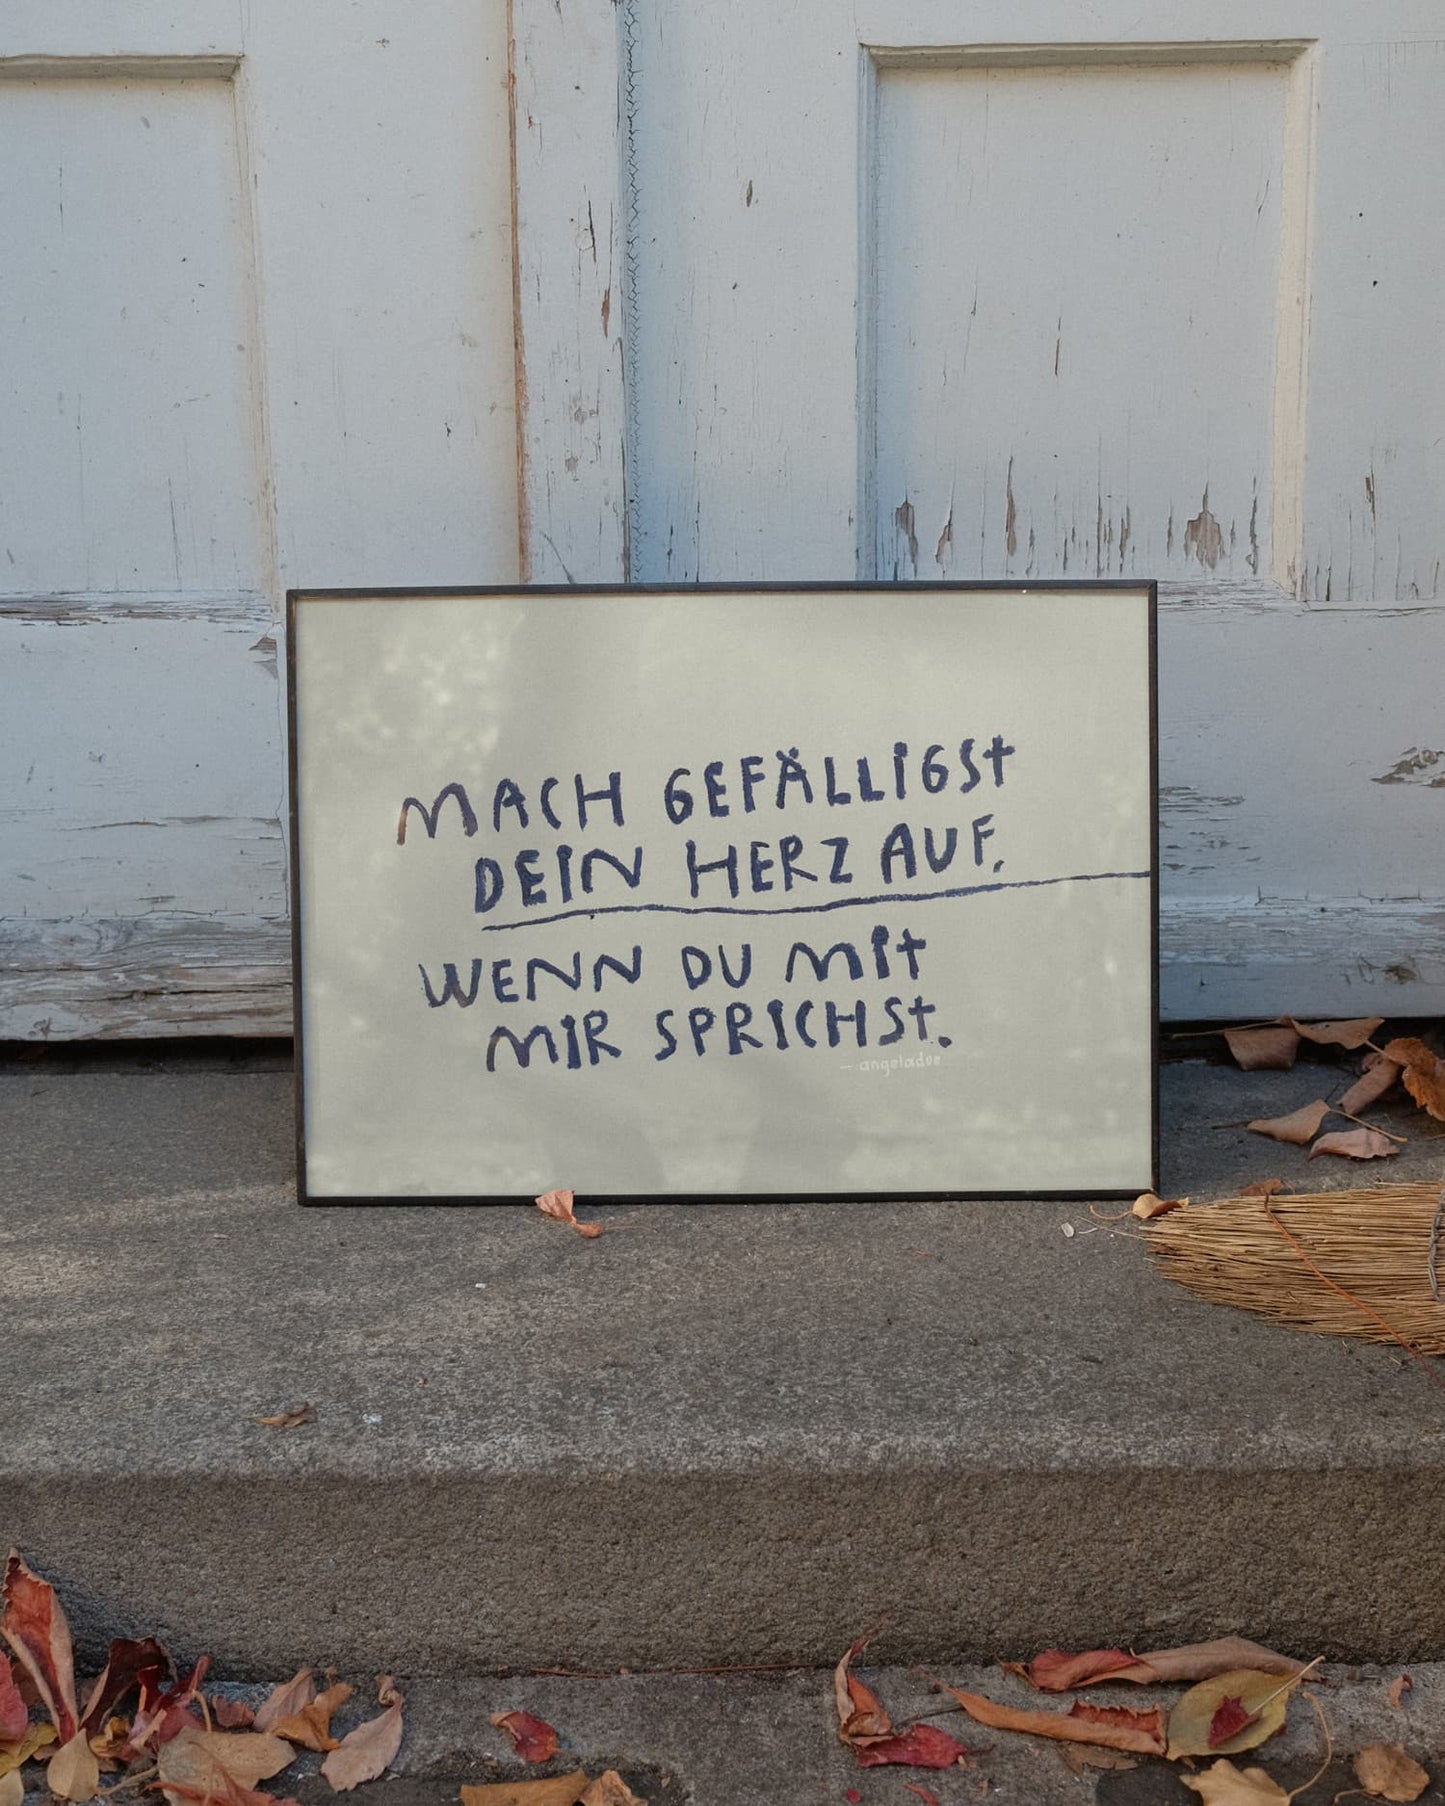 MACH GEFÄLLIGST
DEIN HERZ AUF,
WENN DU MIT
MIR SPRICHST.
– angeladoe